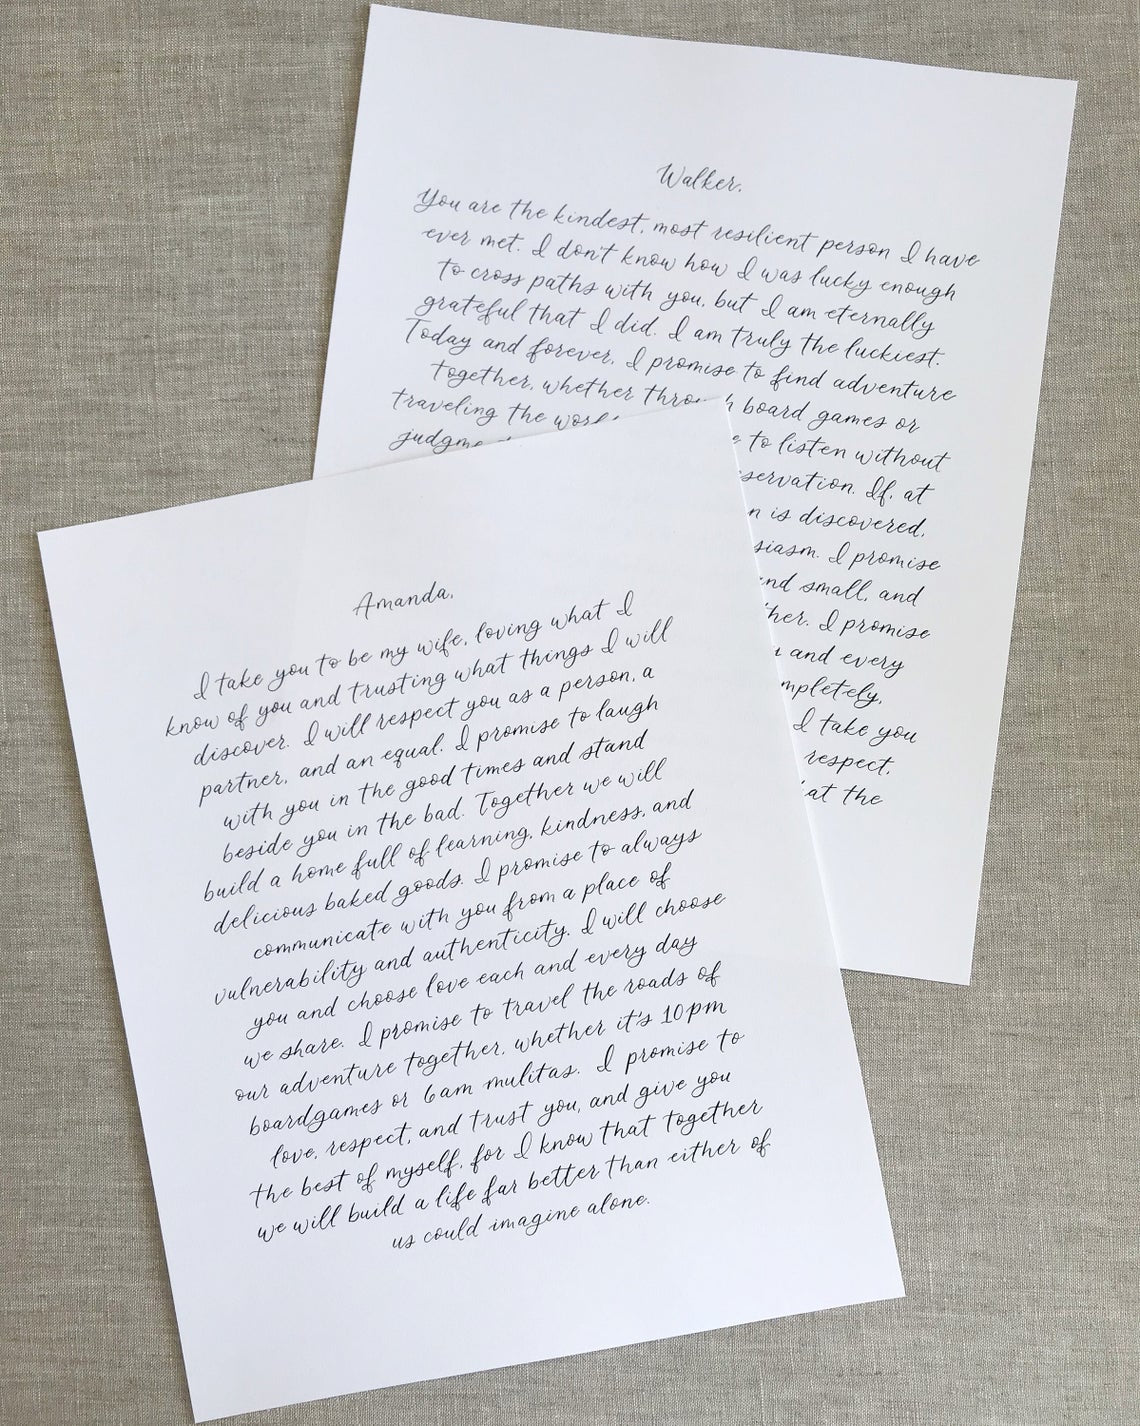 Walker,
You are the kindest, most resilient person I have
ever met. I don't know how I was lucky enough
to cross paths with you, but I am eternally
grateful that I did. I am truly the luckiest.
Today and forever, I promise to find adventure
together, whether board games or
traveling the to listen without
If, at
is discovered,
I promise
small, and
I promise
and every
I take you
respect,
the
Amanda,
I take you to be my wife, loving what I
know of you and trusting what things I will
discover. I will respect you as a person, a
partner, and an equal. I promise to laugh
with you in the good times and stand
beside you in the bad. Together we will
build a home full of learning, kindness, and
delicious baked goods. I promise to always
communicate with you from a place of
vulnerability and authenticity. I will choose
you and choose love each and every day
we share. I promise to travel the roads of
our adventure together, whether it's 10pm
boardgames or 6am mulitas. I promise to
love, respect, and trust you, and give you
the best of myself, for I know that together
we will build a life far better than either of
us could imagine alone.